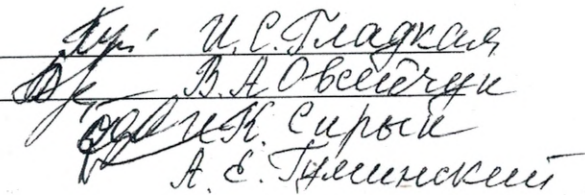 И. С. Гладкая
В. А Овсейчук
И К. Сирый
А. Е. Гуминский